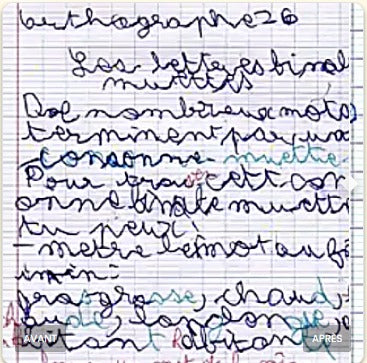 orthographe 26
Les lettres final
muettes
De nombreux mots
terminent par une
consonne muette
Pour trou cett con
onne finale muette
tu peux:
- metre le mot au fé
minin:
gros grosse, chaud,
aude, long longue
AVANT
APRÈS